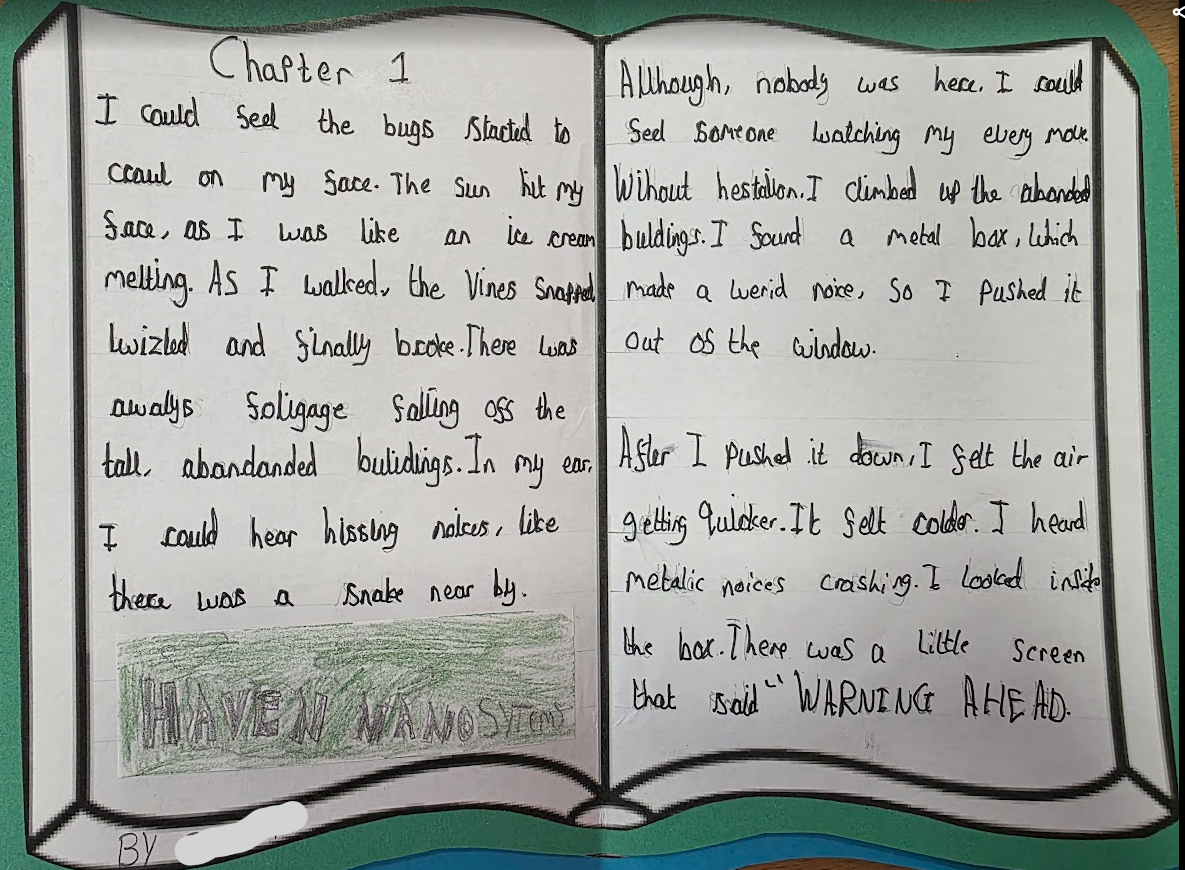 Chapter 1
I could feel the bugs started to
crawl on my face. The sun hit my
face, as I was like an ice cream
melting. As I walked, the vines snapped
twizled and finally broke. There was
awalys foligage falling off the
tall, abandanded bulidings. In my ear,
I could hear hissing noices, like
there was a snake near by.
HAVEN NANO Sytems
BY
Although, nobody was here. I could
feel someone watching my every move.
Wihout hestation. I climbed up the abanded
buldings. I found a metal box, which
made a werid noice, so I pushed it
out of the window.
After I pushed it down, I felt the air
getting quicker. It felt colder. I heard
metalic noices crashing. I looked inside
the box. There was a little screen
that said "WARNING AHEAD.